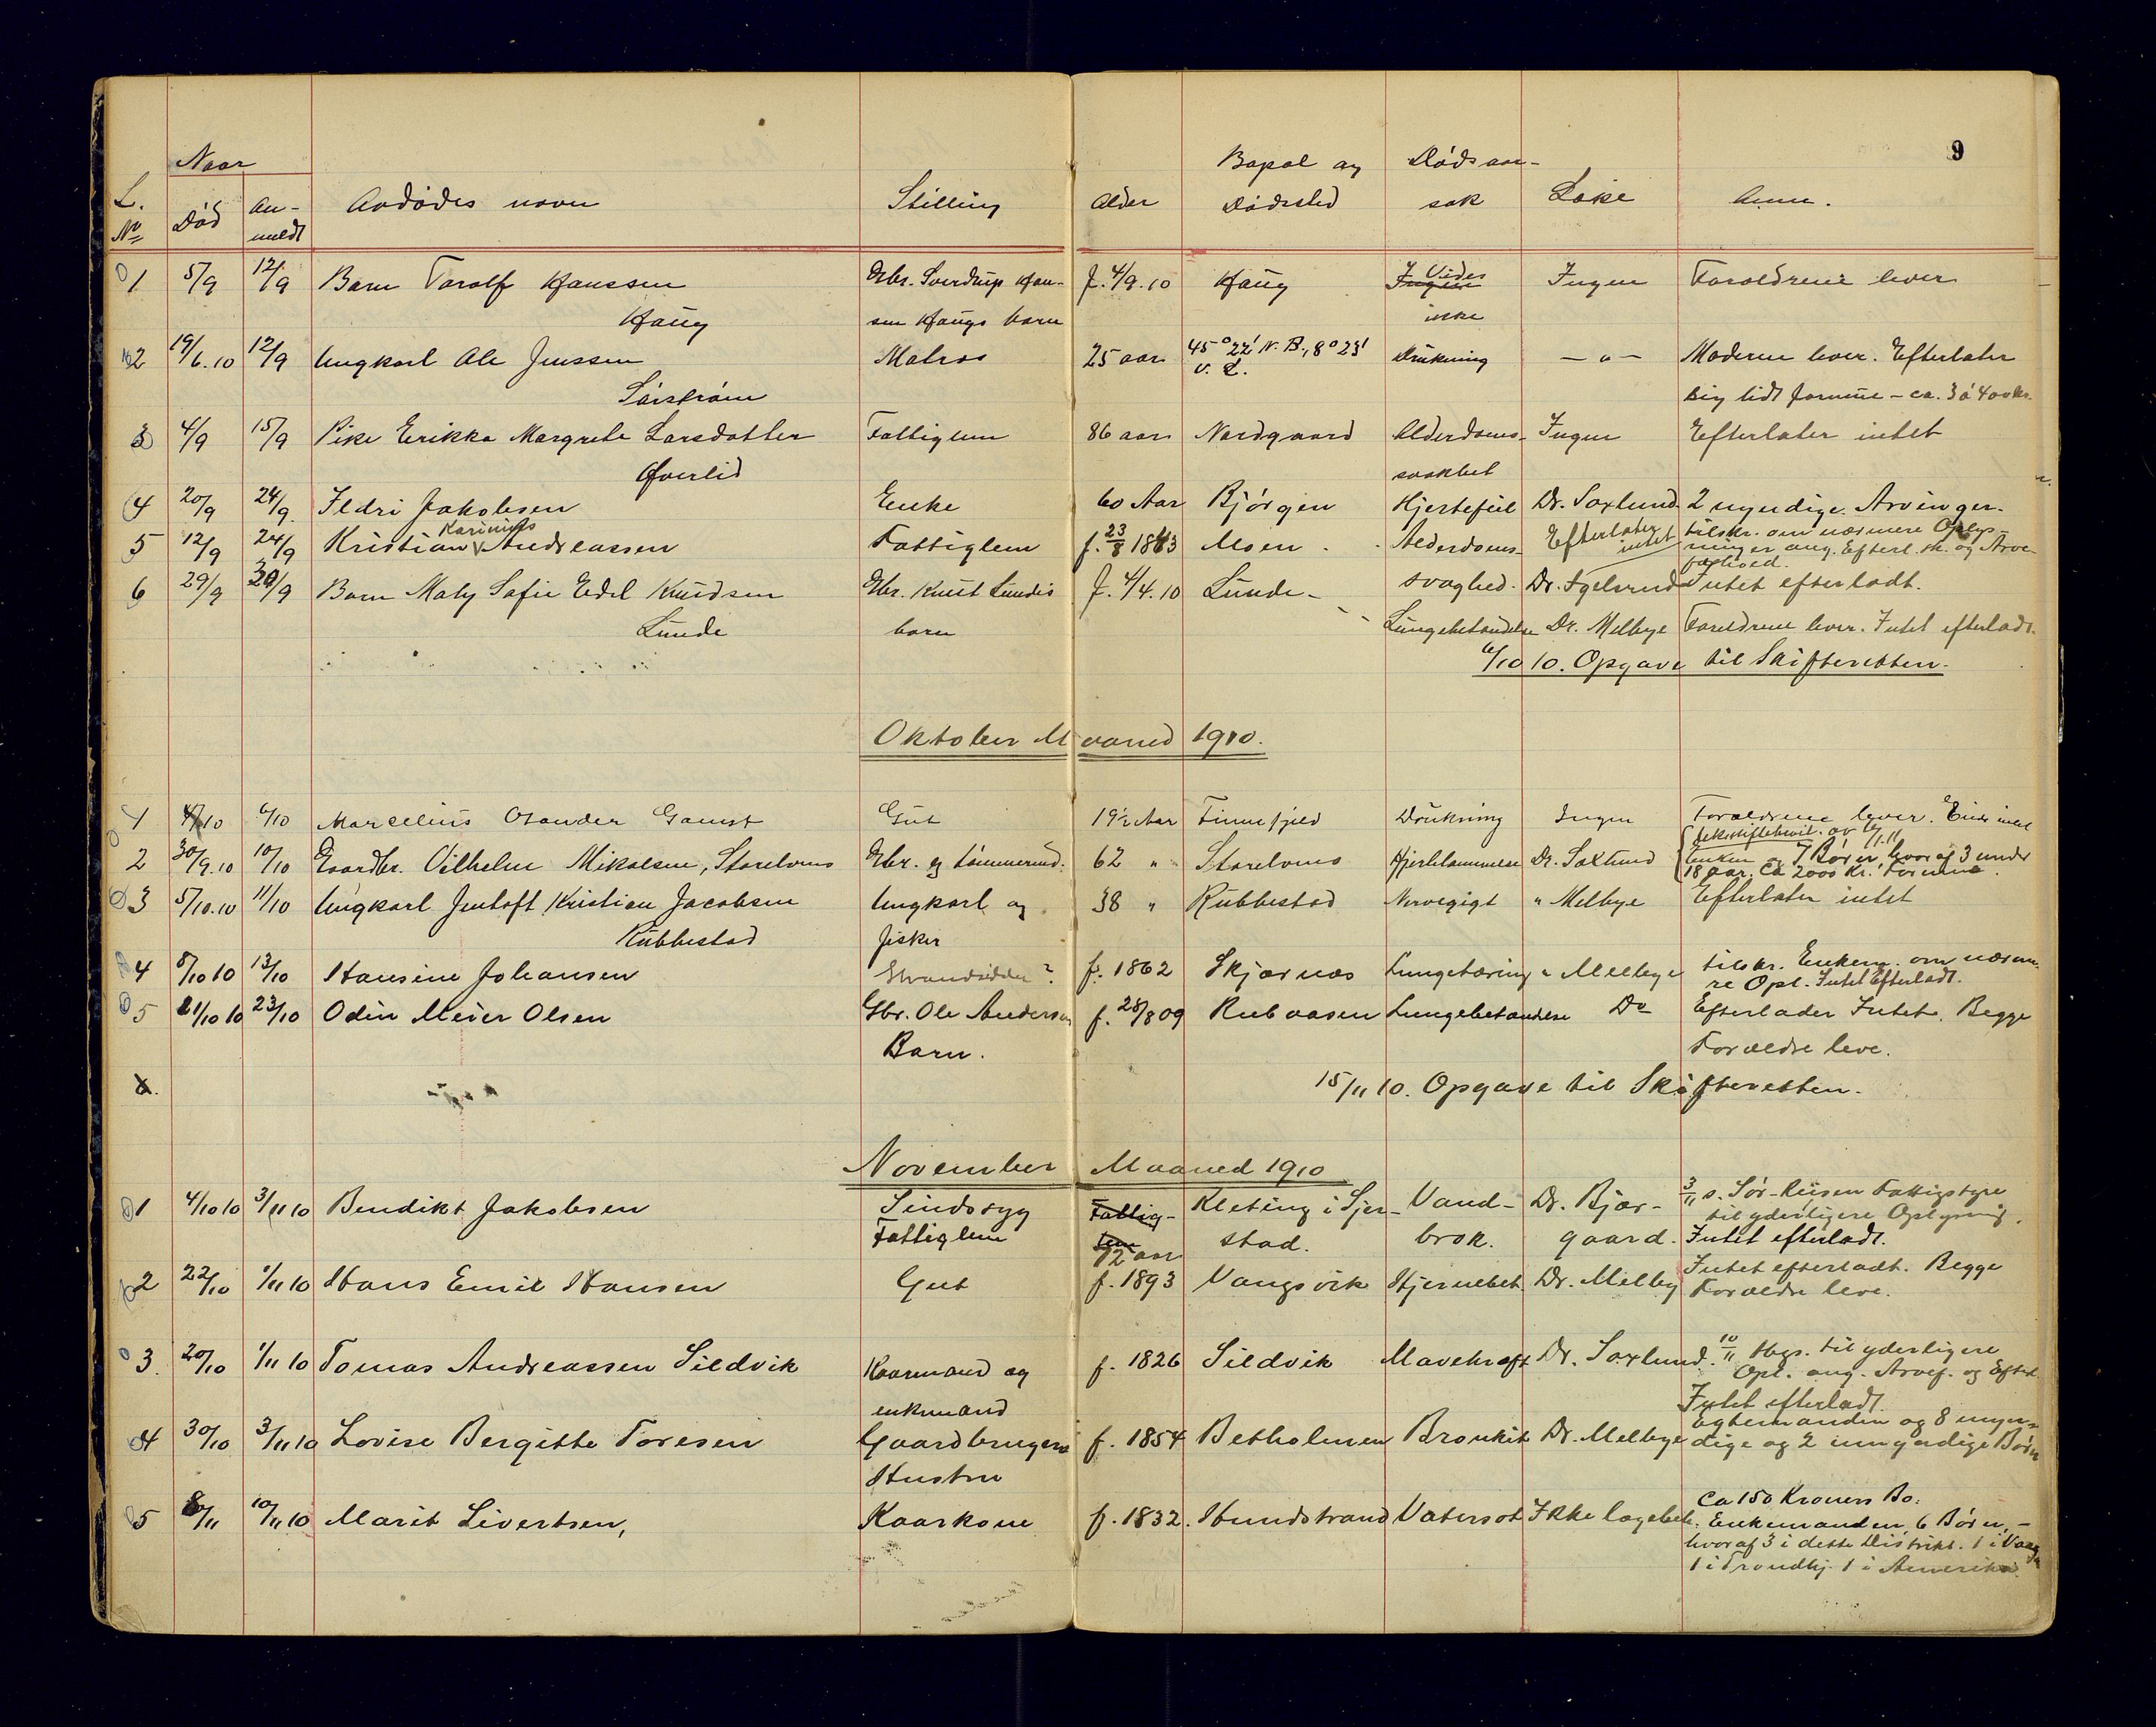 9
Naar
Bopæl og Dødsaar-
L. An- Avdødes navn Stilling Alder Dødssted sak Læke Anm.
No Død meldt
1 5/9 12/9 Barn Torolf Hanssen Gbr. Sverdrup Han- f. 4/9.10 Haug Vides Ingen Foraldrene lever
Haug sen Haugs barn ikke
2 19/6.10 12/9 Ungkarl Ole Jenssen Matros 25 aar 45° 22' N. B., 8° 23' Drukning — " — Moderen lever. Efterlater
Sørstrøm V. L. sig lidt formue – ca. 3 à 400 kr.
3 4/9 15/9 Pike Erikka Margrete Larsdatter Fattiglem 86 aar Nordgaard Alderdoms- Ingen Efterlater intet
Øverlid svakhet
4 20/9 24/9. Ildri Jakobsen Enke 60 Aar Bjørgen Hjertefeil Dr. Saxlund 2 myndige Arvinger.
Karinius
5 12/9 24/9 Kristian Andreassen Fattiglem f. 23/8 1843 Moen Alderdoms- Efterlater intet tilskr. om nærmere Oplys-
ninger ang. Efterl. sk. og Arve-
forhold.
6 29/9 29/9 Barn Maly Sofie Edel Knudsen Gbr. Knut Lundes f. 4/4.10 Lunde svaghed. Dr. Igelsrud Intet efterladt.
Lunde barn Lungebetændelse Dr. Melbye Foreldrene lever. Intet efterladt.
6/10 10. Opgave til Skifteretten.
Oktober Maaned 1910.
1 4/10 6/10 Marcelius Osander Gamst Gut 19½ Aar Finnfjeld Drukning Ingen Forældrene lever. Eier intet
2 30/9.10 10/10 Gaardbr. Vilhelm Mikalsen, Storelvmo Gbr. og tømmermd. 62 " Storelvmo Hjertelammelse Dr. Saxlund Enken og 7 Børn, hvoraf 3 under
18 aar. Ca 2000 Kr. Formue.
3 5/10.10 11/10 Ungkarl Jentoft Kristian Jacobsen Ungkarl og 38 " Rubbestad Nervegigt " Melbye Efterlater intet
Rubbestad fisker
4 8/10 10 13/10 Hansine Johansen Strandsidder? f. 1862 Skjærnes Lungetæring " Melbye tilskr. Enkem. om nærme-
re Opl. Intet Efterladt.
5 21/10 10 23/10 Odin Meier Olsen Gbr. Ole Andersen f. 28/8 09 Rubaasen Lungebetændelse Do Efterlader Intet. Begge
Barn. Forældre leve.
15/11 10. Opgave til Skifteretten.
November Maaned 1910
1 4/10 10 3/11 10 Bendikt Jakobsen Sindssyg Fattig- Kleting i Sjer- Vand- Dr. Bjør- 3/11 s. Sør-Reisen Fattigstyre
til yderligere Oplysning.
Fattiglem lem 72 aar stad. brok. gaard. Intet efterladt.
2 22/10 1/11 10 Hans Emil Hansen Gut f. 1893 Vangsvik Hjernebet. Dr. Melby Intet efterladt. Begge
Forældre leve.
3. 20/10 1/11 10 Tomas Andreassen Sildvik Kaarmand og f. 1826 Sildvik Mavekræft Dr. Saxlund. 10/11 Hgs. til yderligere
Opl. ang. Arvef. og Efterl.
enkemand Intet efterladt.
4 30/10 3/11 10 Lovise Bergitte Toresen Gaardbrugers f. 1854 Betholmen Bronkit Dr. Melbye Ægtemanden og 8 myn-
dige og 2 umyndige Børn
Hustru
5 8/11 10/11 10 Marit Sivertsen, Kaarkone f. 1832. Hundstrand Vatersot Ikke lægebeh. Ca 150 Kroners Bo.
Enkemanden, 6 Børn, –
hvoraf 3 i dette Distrikt. 1 i
1 i Trondhj. 1 i Amerika.